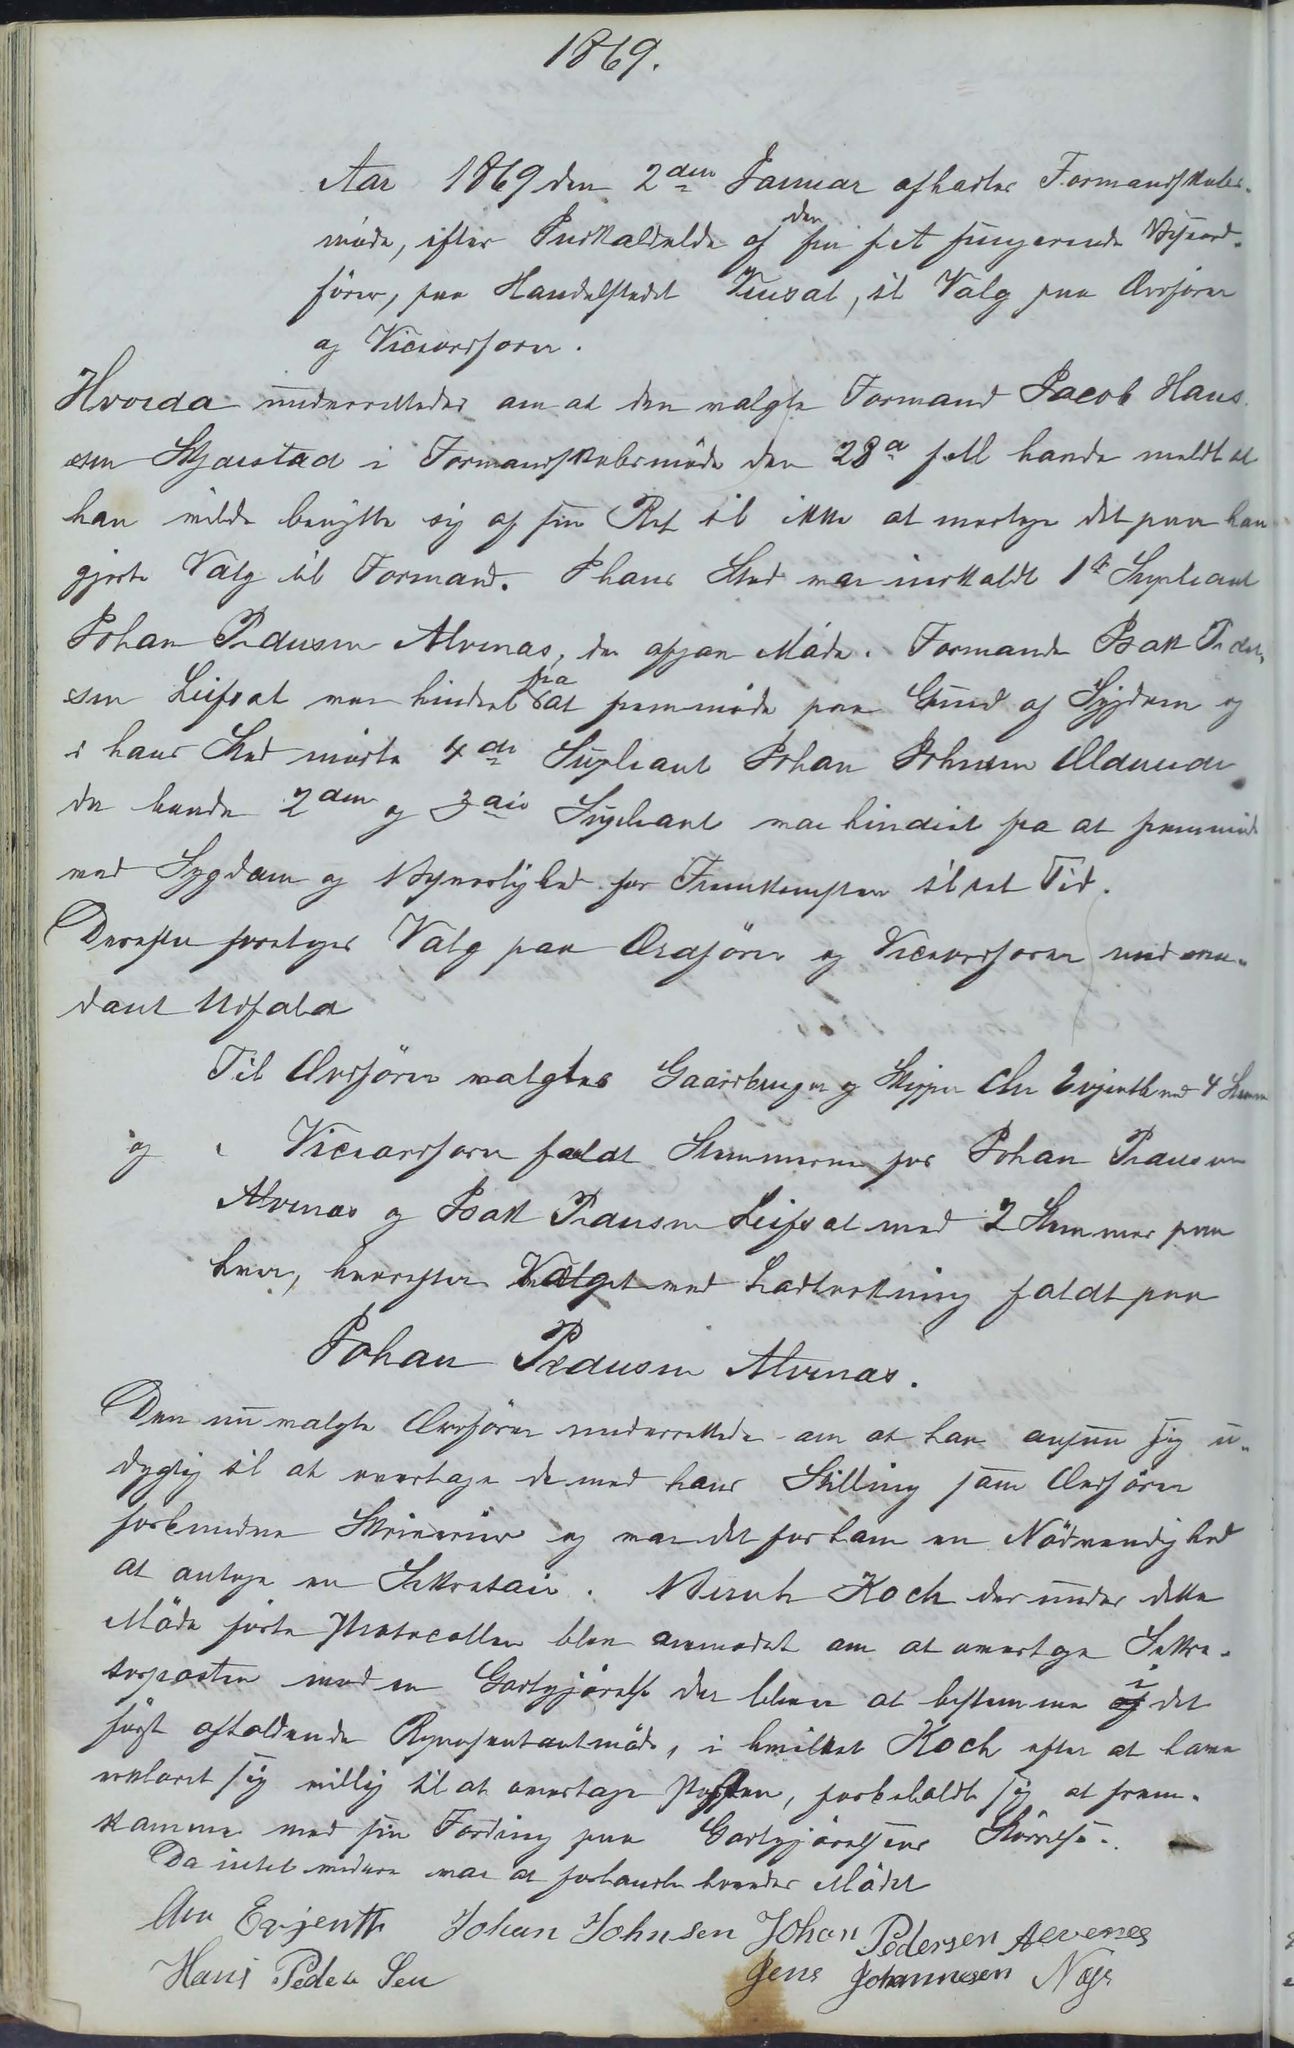 1869.
Aar 1869 den 2den Januar afholdes Formandskabs-
møde, efter Indkaldelse af den fra f. A fungerende Viceord-
fører, paa Handelstedet Tusvat, til Valg paa Ordfører
og Viceordfører.
Hvorda underrettedes om at den valgte Formand Jacob Hans
sen Skjærstad i Formandskabsmøde den 28de f. M. havde meldt at
han vilde benytte sig af sin Ret til ikke at modtage det paa ham
gjorte Valg til Formand. I hans Sted var indkaldt 1ste Supleant
Johan Pedersen Alvenæs, der afgav Møde. Formand Isak Peder-
sen Leifset var hindret fra at fremmøde paa Grund af Sygdom og
i hans Sted mødte 4de Supleant Johan Johnsen
da baade 2den og 3die Supleant var hindret fra at fremmøde
ved Sygdom og for Fremkomsten til ret Tid.
Derefter foretoges Valg paa Ordfører og Viceordfører med saa-
dant Udfald
Til Ordfører valgtes Gaardbruger og Skipper Ole Evjenth med 4 Stemmer
og i Viceordfører faldt Stemmerne for Johan Pedersen
Alvenæs og Isak Pedersen Leifset med 2 Stemmer paa
hver, hvorefter Valget ved Lodtrækning faldt paa
Johan Pedersen Alvenæs.
Den nu valgte Ordfører underrettede om at han ansaa sig u-
dygtig til at overtage de med hans Stilling som Ordfører
forbundne Skriverier og var det for ham en Nødvendighed
at antage en Sekretair. Bernt Koch der under dette
Møde førte Protocollen blev anmodet om at overtage Sekre-
tærposten mod en Godtgjørelse der bliver at bestemme i det
først afholdende Representantmøde, i hvilket Koch efter at have
erklæret sig villig til at overtage Posten, forbeholdt sig at frem-
komme med sin Fording paa Godtgjørelsens Størrelse.
Da intet videre var at forhandle hævedes Mødet
Ole Evjenth Johan Johnsen Johan Pedersen Alvenes
Hans Peder Sen Jens Johannesen Næss